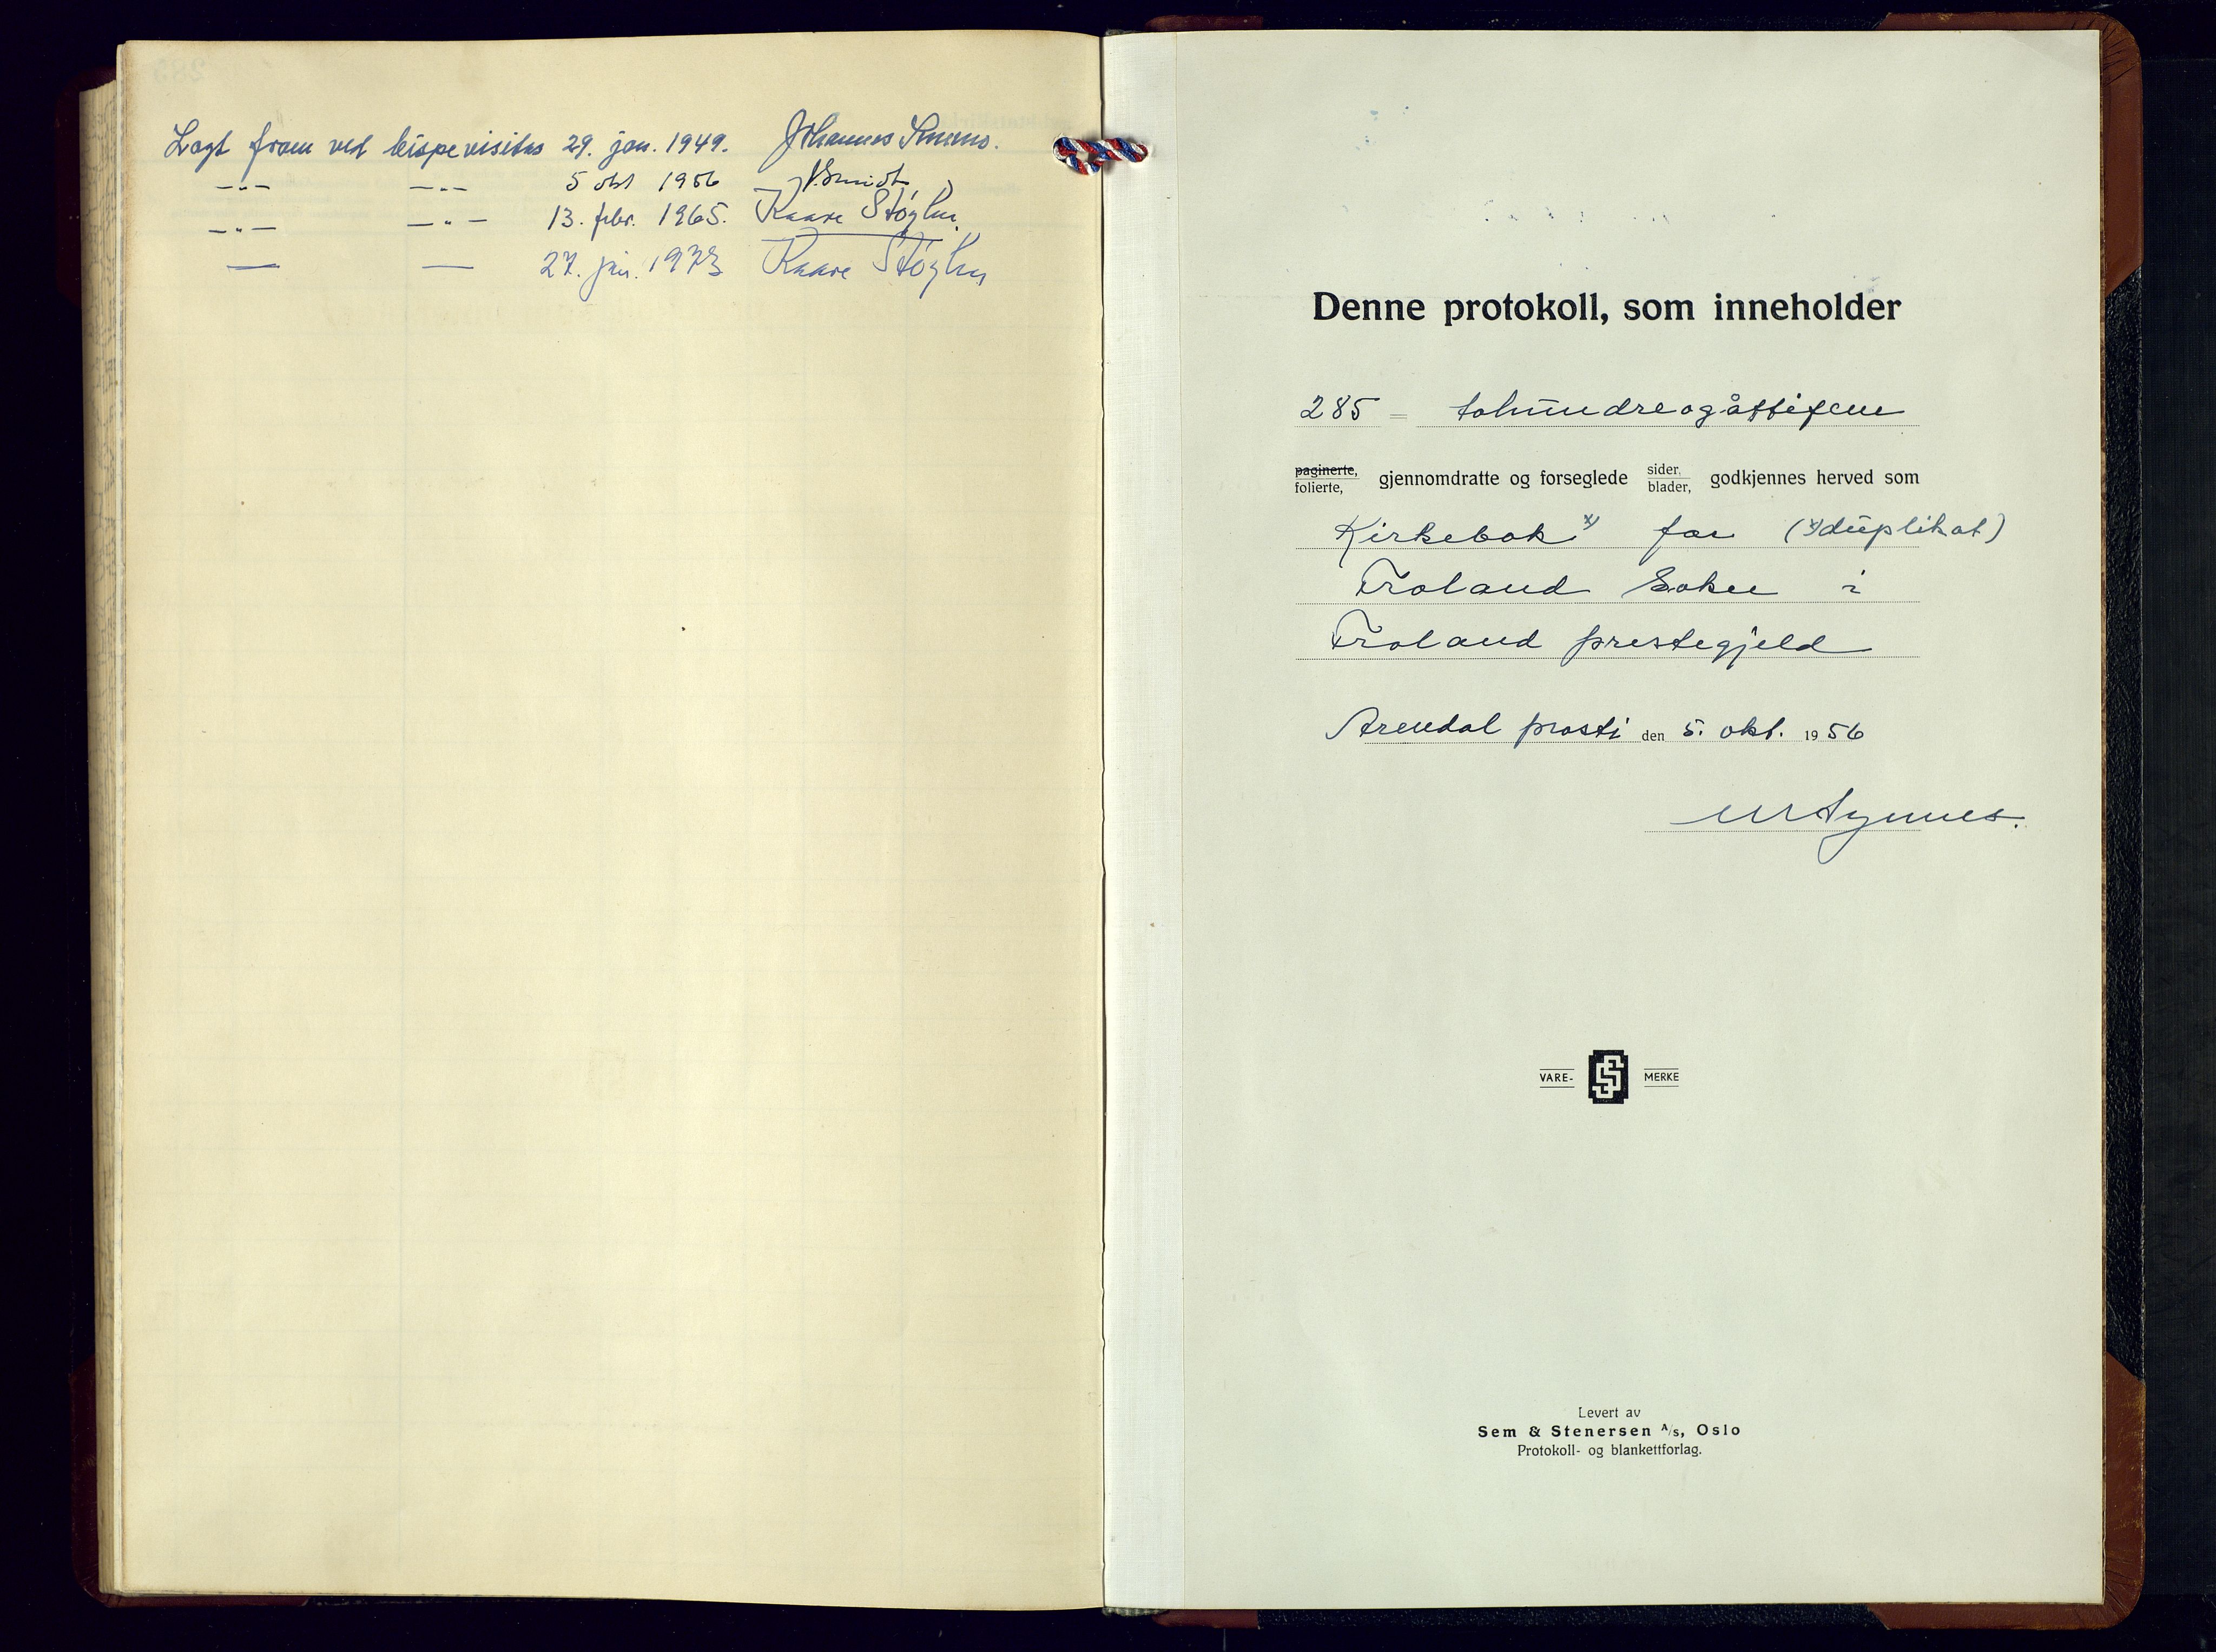 Lagt fram ved bispevisitas 29. jan. 1949. Johannes Smemo.
—"— —"— 5 okt 1956 J. Smidt
—"— —"— 13. febr. 1965. Kaare Støylen.
— — 27. jan. 1973 Kaare Støylen
Denne protokoll, som inneholder
285 = tohundreogåttifem
paginerte,
folierte, gjennomdratte og forseglede sider,
blader, godkjennes herved som
Kirkebok x) for (x) duplikat)
Froland Sokn i
Froland prestegjeld
Arendal prosti den 5. okt. 1956
VARE- MERKE
Levert av
Sem & Stenersen A/s, Oslo
Protokoll- og blankettforlag.